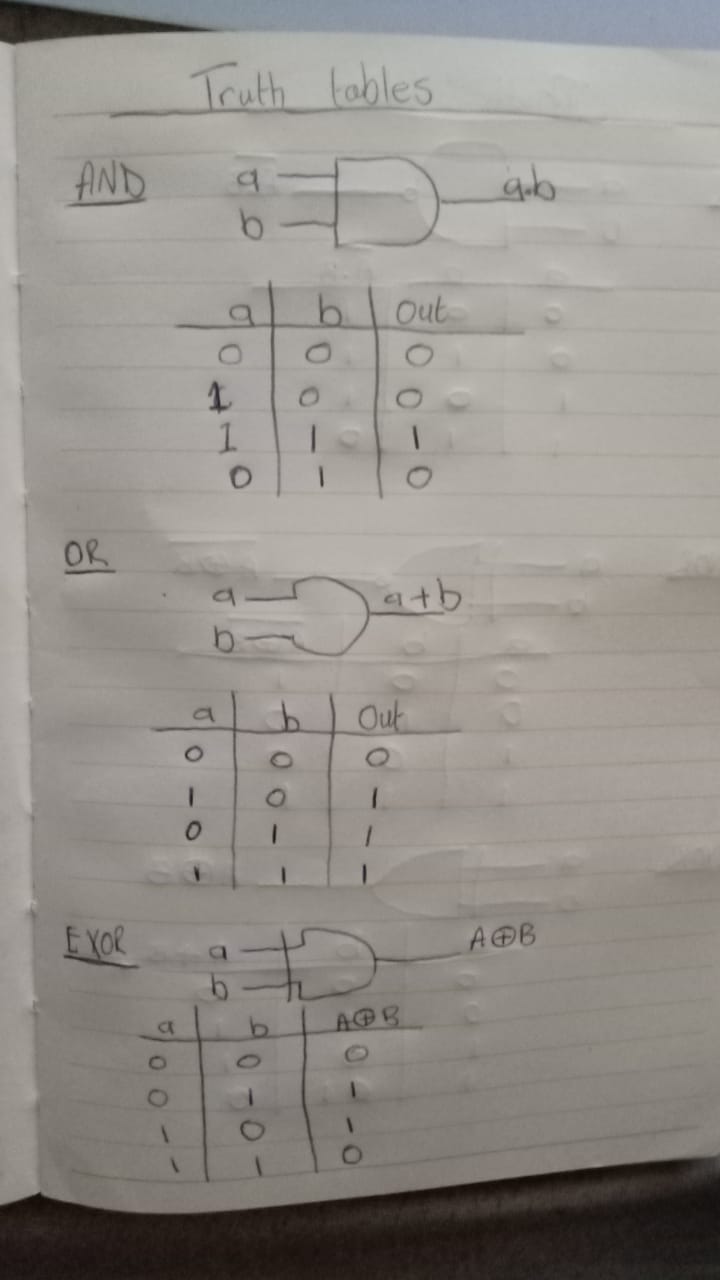 Truth tables
AND a a.b
b
a b Out
0 0 0
1 0 0
1 1 1
0 1 0
OR
a a+b
b
a b Out
0 0 0
1 0 1
0 1 1
1 1 1
EXOR a A⊕B
b
a b A⊕B
0 0 0
0 1 1
1 0 1
1 1 0